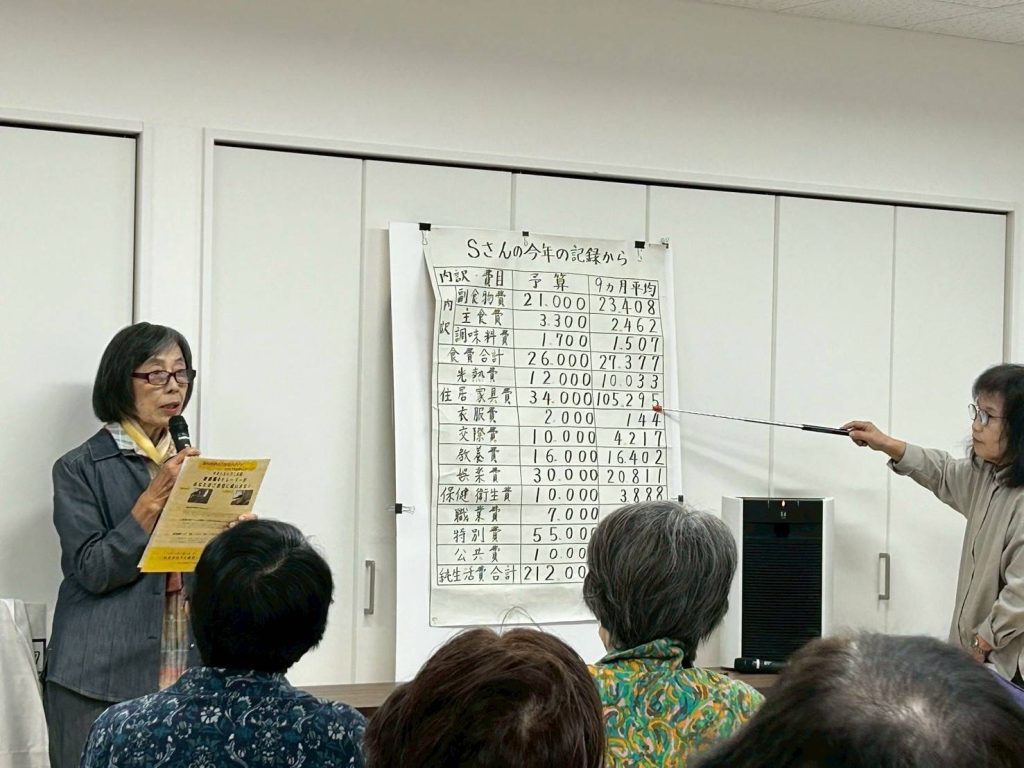 Sさんの今年の記録から
内訳・費目 予算 9ヵ月平均
内訳 副食物費 21.000 23.408
主食費 3.300 2.462
調味料費 1.700 1.507
食費合計 26.000 27.377
光熱費 12.000 10.033
住居家具費 34.000 105.295
衣服費 2.000 144
交際費 10.000 4.217
教養費 16.000 16.402
娯楽費 30.000 20.811
保健衛生費 10.000 3.888
職業費 7.000
特別費 55.00
公共費 10.00
純生活費合計 212.00